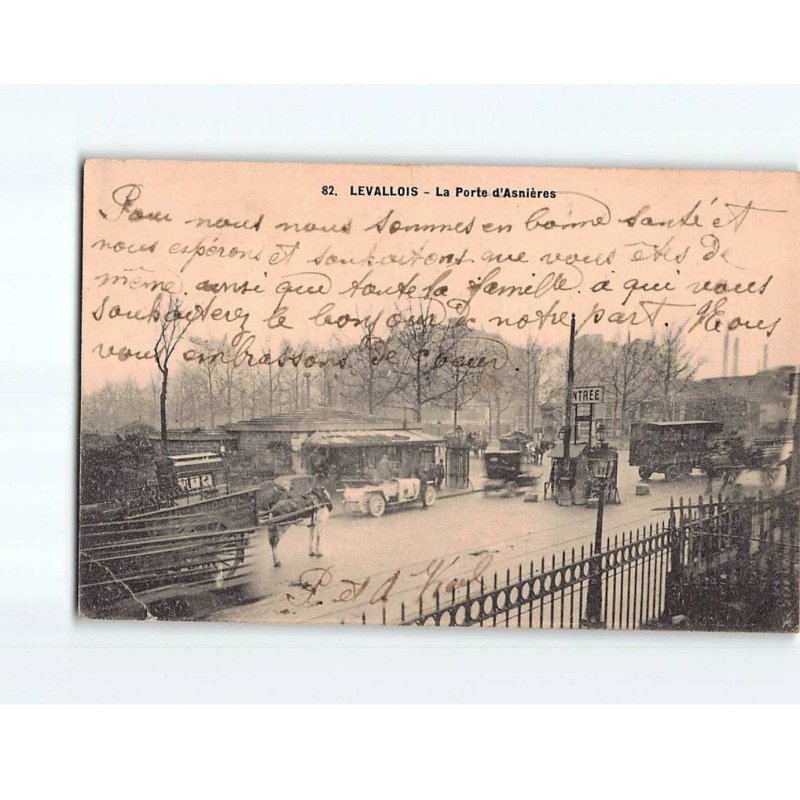 82. LEVALLOIS - La Porte d'Asnières
Pour nous nous sommes en bonne santé et
nous espérons et souhaitons que vous êtes de
même ainsi que toute la famille à qui vous
souhaiterez le bonjour de notre part Nous
vous embrassons de cœur.
NTRÉE
P et A